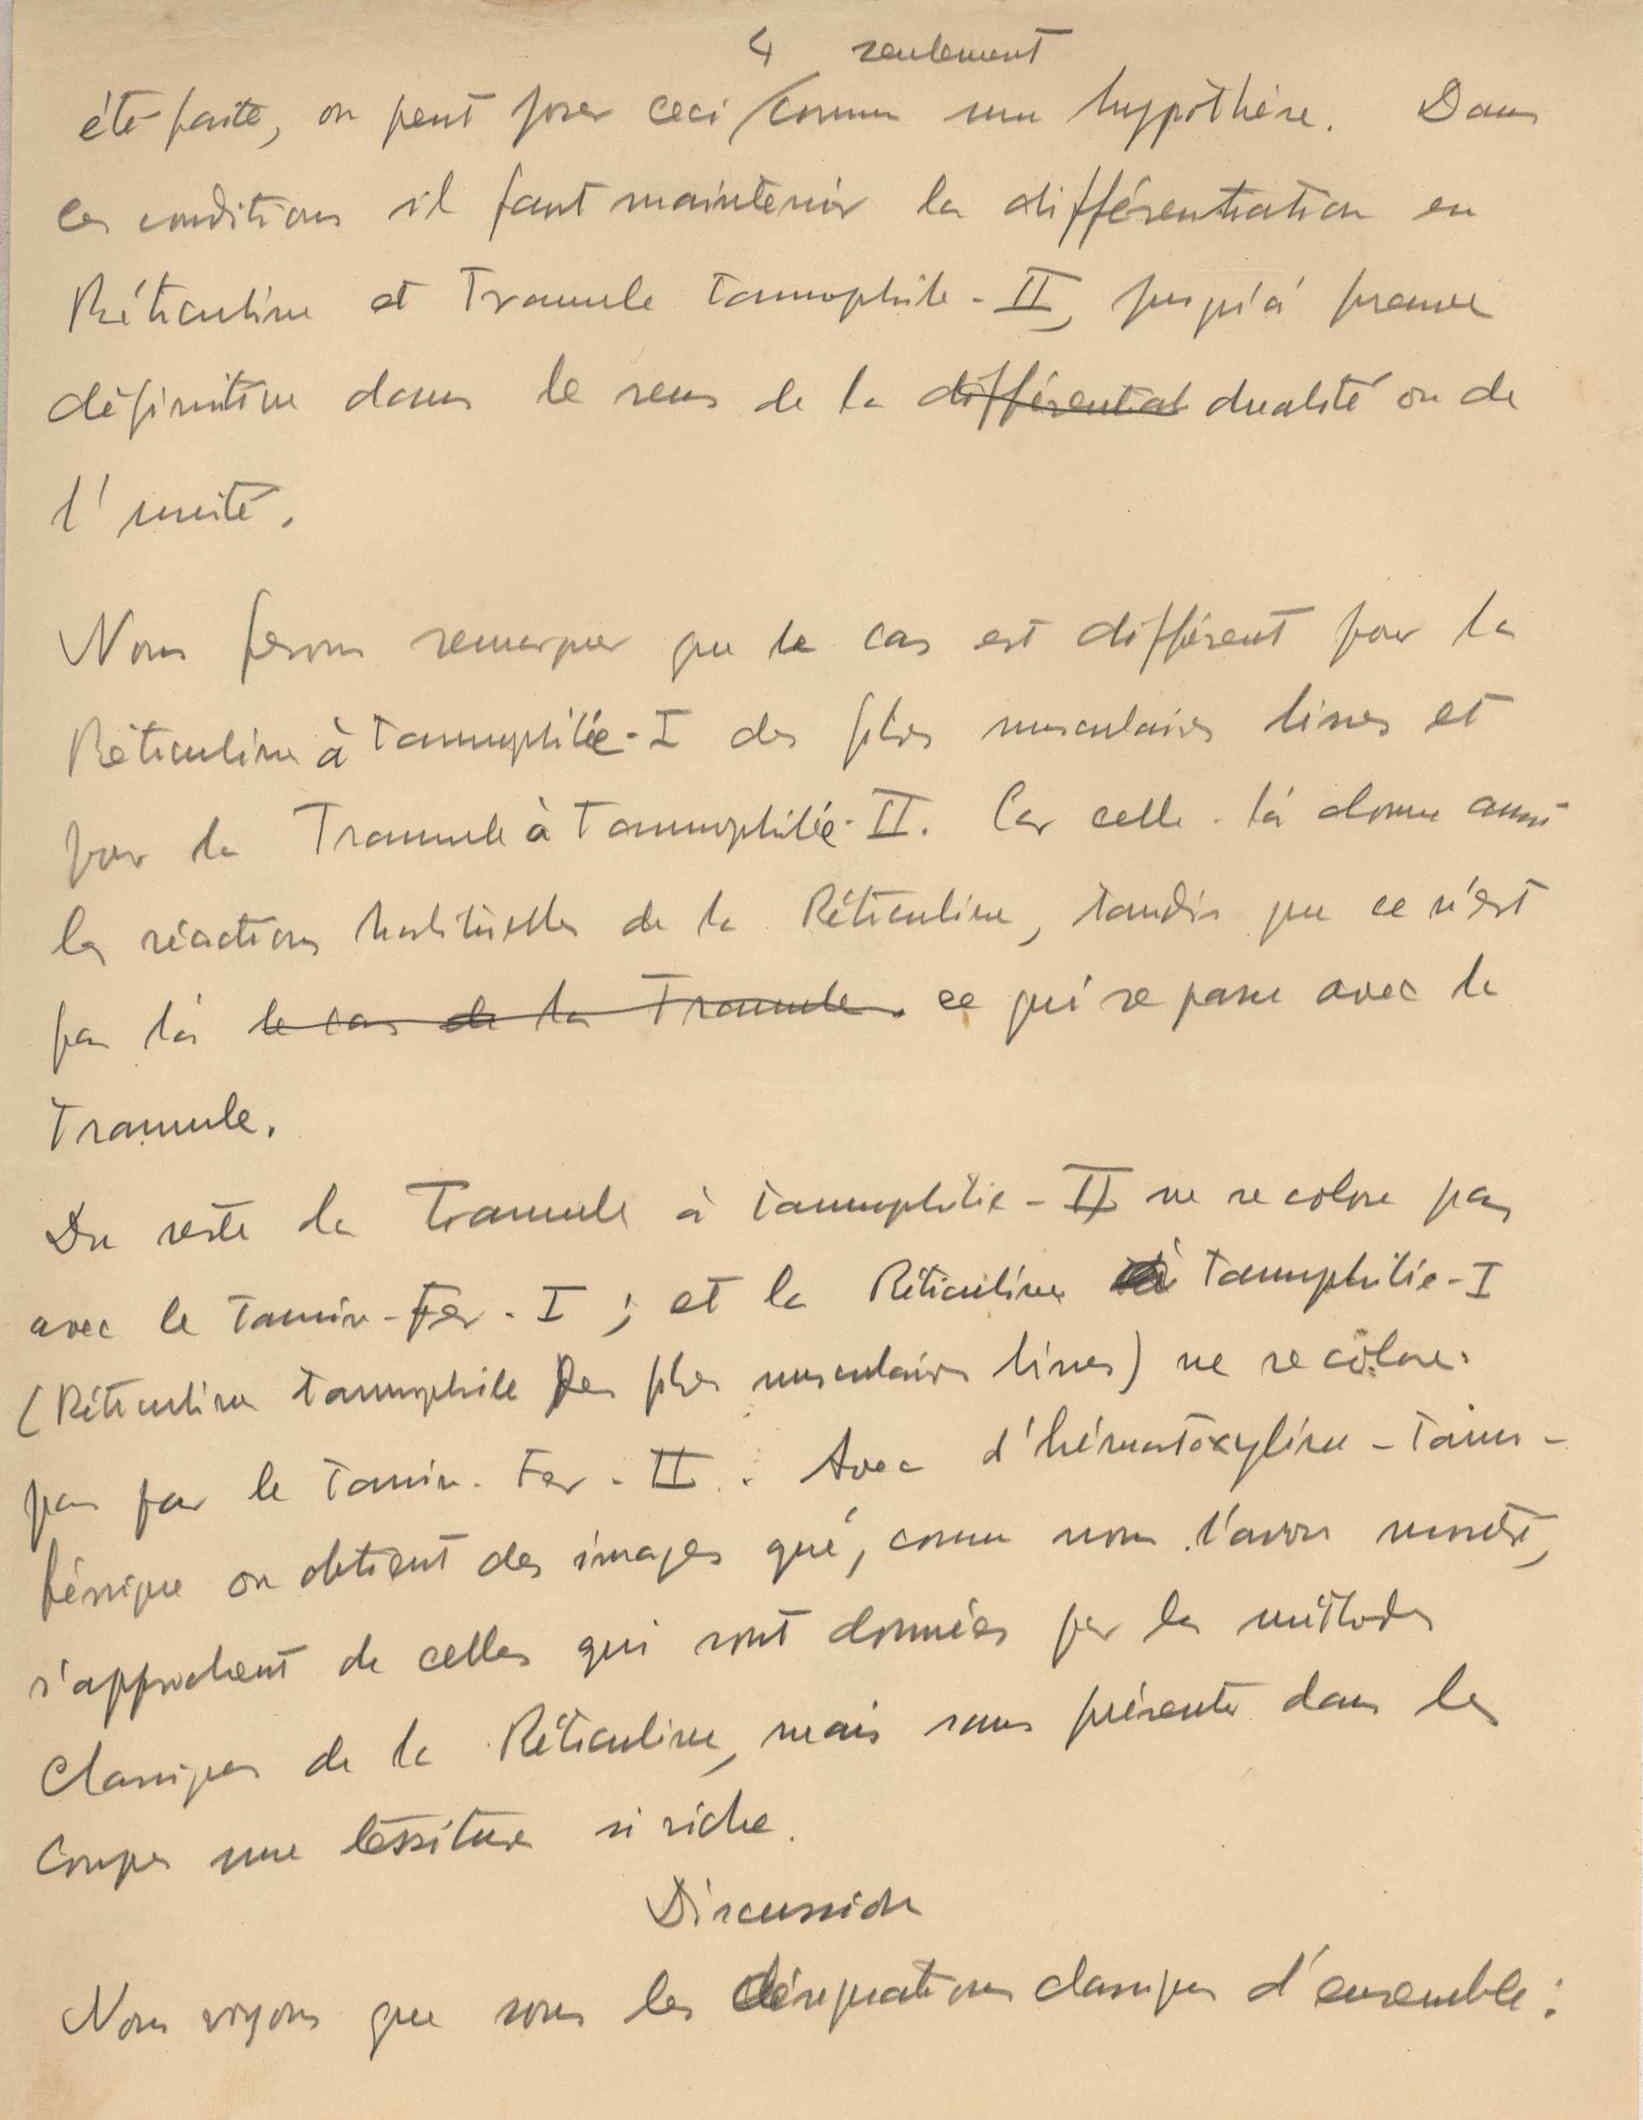 4 seulement
été faite, on peut poser ceci comme une hypothèse. Dans
ces conditions il faut maintenir la différentiation en
Réticuline et Tramule tannophile-II, jusqu'à preuve
définitive dans le sens de la différentiat dualité ou de
l'unité.
Nous ferons remarquer que le cas est différent pour la
Réticuline à Tannophilie-I des fibres musculaires lisses et
pour la Tramule à Tannophilie-II. Car celle-là donne aussi
les réactions habituelles de la Réticuline, tandis que ce n'est
pas là le cas de la Tramule. ce qui se passe avec la
Tramule.
Du reste la Tramule à tannophilie-II ne se colore pas
avec le Tannin-Fer-I ; et la Réticuline à Tannophilie-I
(Réticuline tannophile des fibres musculaires lisses) ne se colore
pas par le Tannin-Fer-II. Avec l'hématoxyline-Tanno-
ferrique on obtient des images que, comme nous l'avons montré,
s'approchent de celles qui sont données par les méthodes
classiques de la Réticuline, mais sans présenter dans les
coupes une tessiture si riche.
Discussion
Nous voyons que sous les désignations classiques d'ensemble: